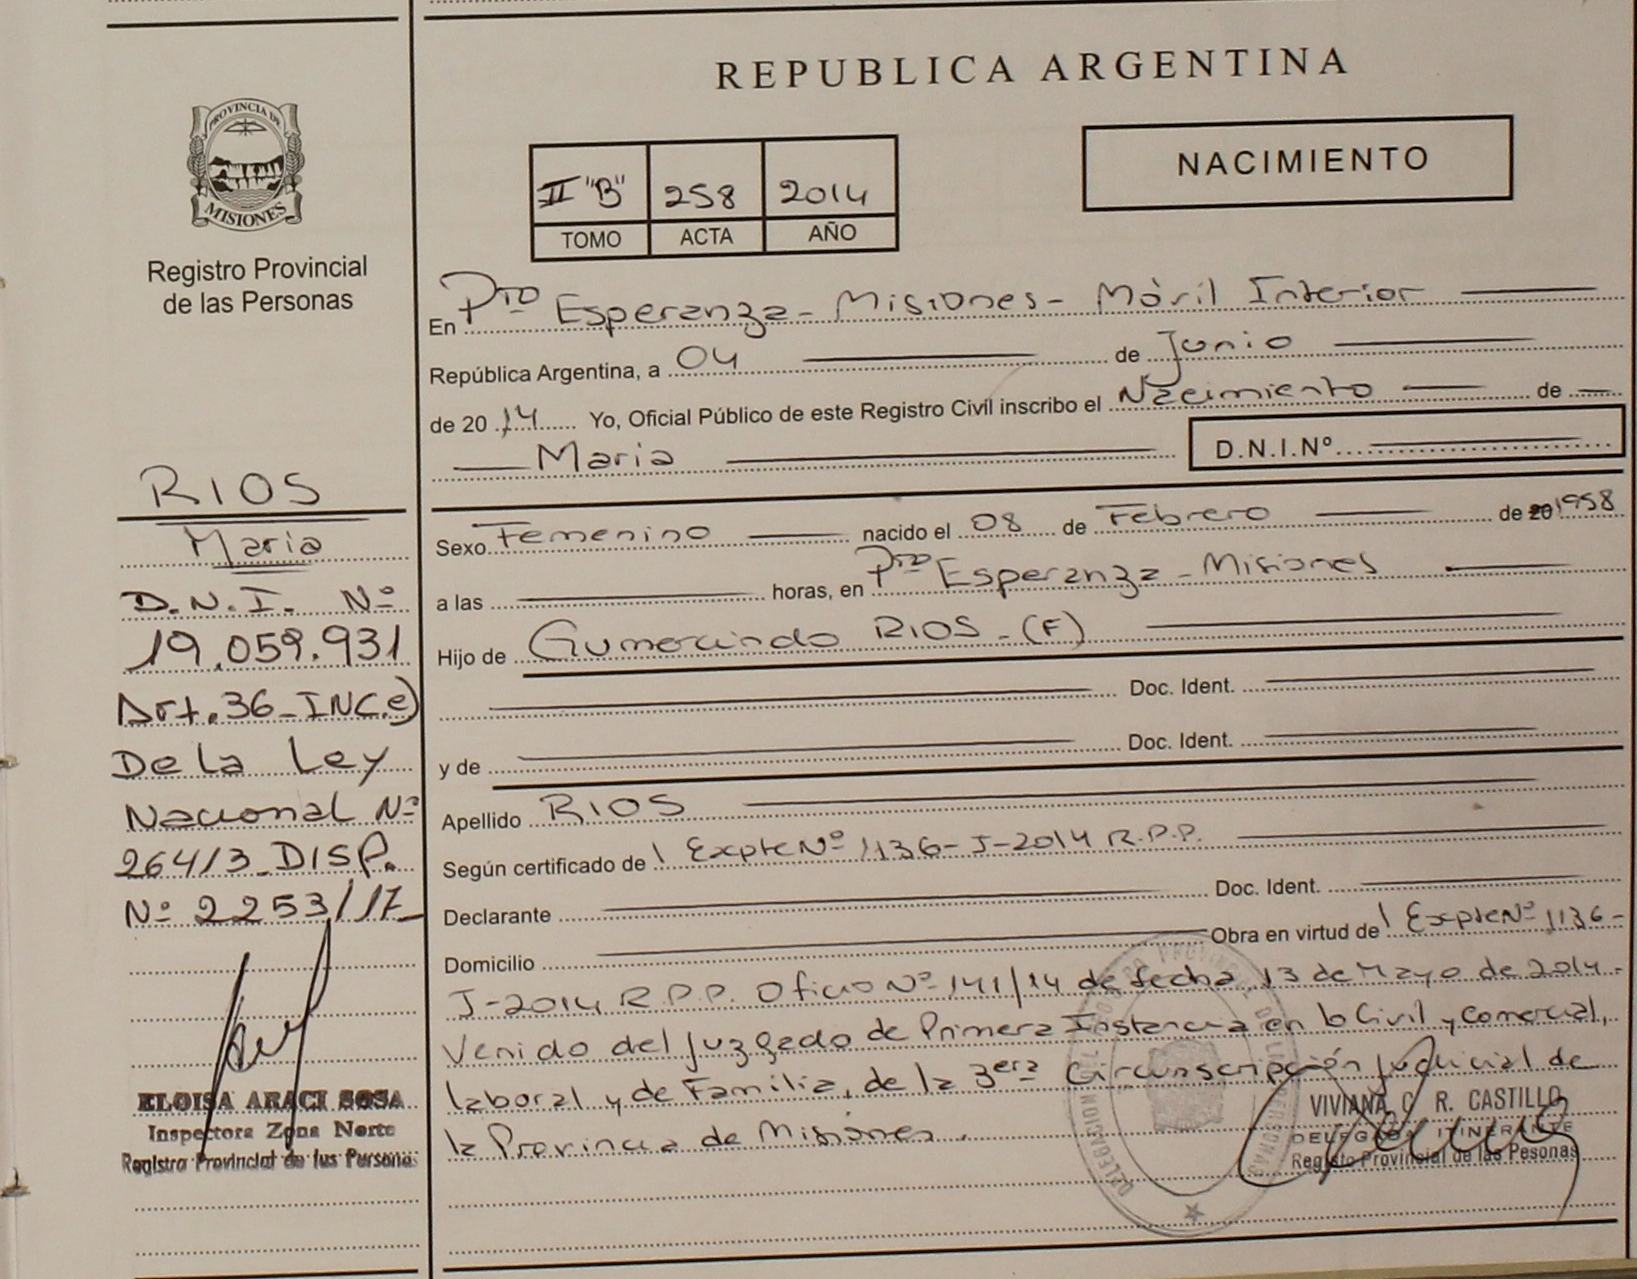 PROVINCIA DE
MISIONES
Registro Provincial
de las Personas
RIOS
Maria
D.N.I. Nº
19.059.931
Art.36-INC.e)
De la Ley
Nacional Nº
26413-DISP.
Nº 2253/17
ELOISA ARACI SOSA
Inspectora Zona Norte
Registro Provincial de las Personas
REPUBLICA ARGENTINA
II "B" 258 2014
TOMO ACTA AÑO
NACIMIENTO
En Pto Esperanza - Misiones - Móvil Interior
República Argentina, a 04 de Junio
de 2014 Yo, Oficial Público de este Registro Civil inscribo el Nacimiento de
Maria D.N.I.Nº
Sexo Femenino nacido el 08 de Febrero de 20 1958
a las horas, en Pto Esperanza - Misiones
Hijo de Gumercindo RIOS - (F)
Doc. Ident.
y de Doc. Ident.
Apellido RIOS
Según certificado de Expte Nº 1136-J-2014 R.P.P.
Declarante Doc. Ident.
Domicilio Obra en virtud de Expte Nº 1136-
J-2014 R.P.P. Oficio Nº 141/14 de fecha 13 de Mayo de 2014-
Venido del Juzgado de Primera Instancia en lo Civil y Comercial,
laboral y de Familia, de la 3era Circunscripción Judicial de
la Provincia de Misiones.
VIVIANA C. R. CASTILLO
DELEGADA ITINERANTE
Registo Provincial de las Pesonas